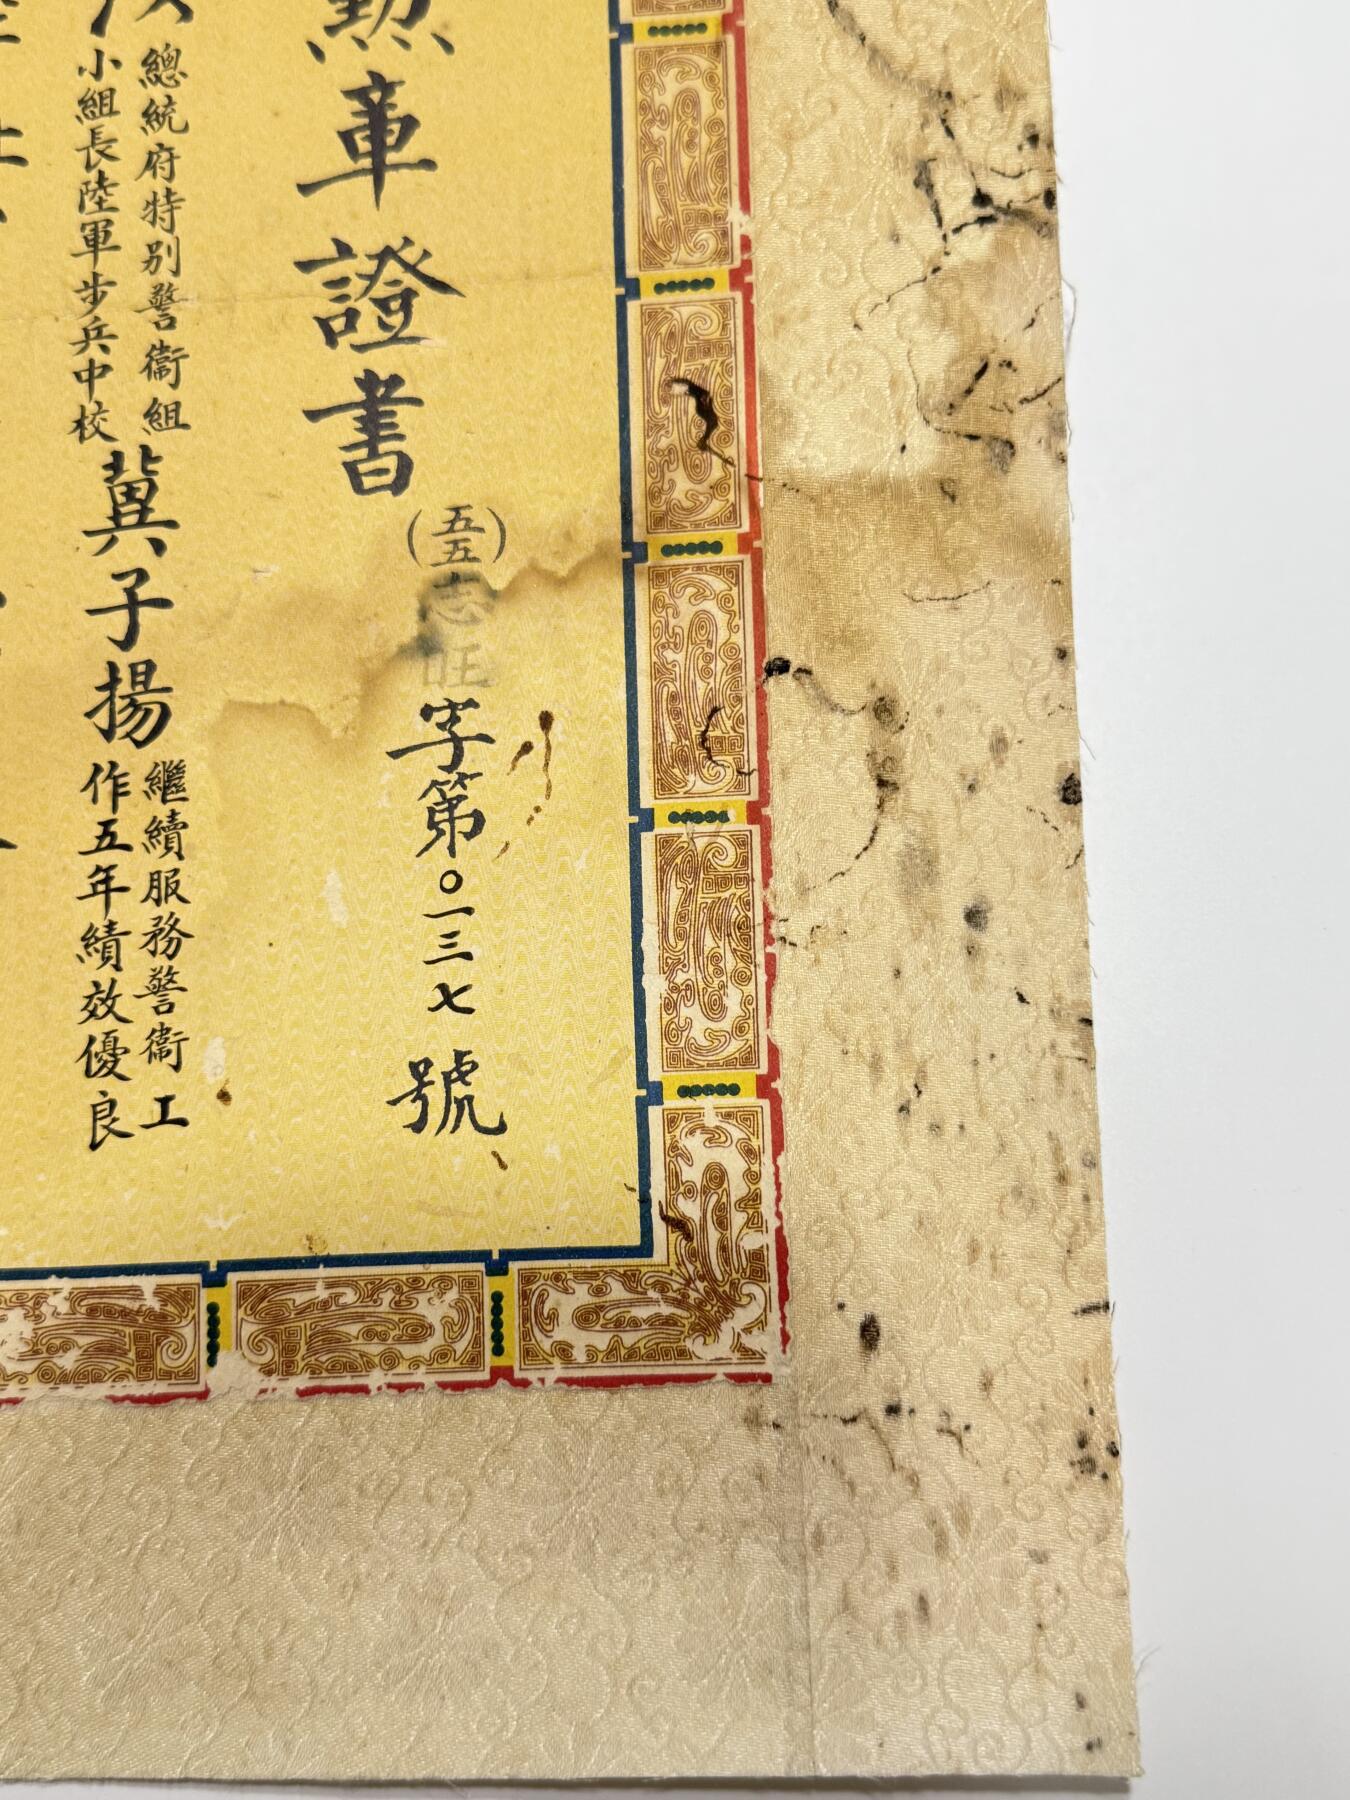 勲章證書
（五五）志旺字第〇一三七號
總統府特別警衞組
小組長陸軍步兵中校
冀子揚
繼續服務警衞工
作五年績效優良